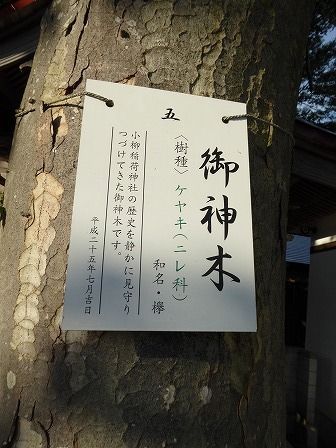 五
御神木
〈樹種〉ケヤキ(ニレ科)
和名・欅
小柳稲荷神社の歴史を静かに見守り
つづけてきた御神木です。
平成二十五年七月吉日